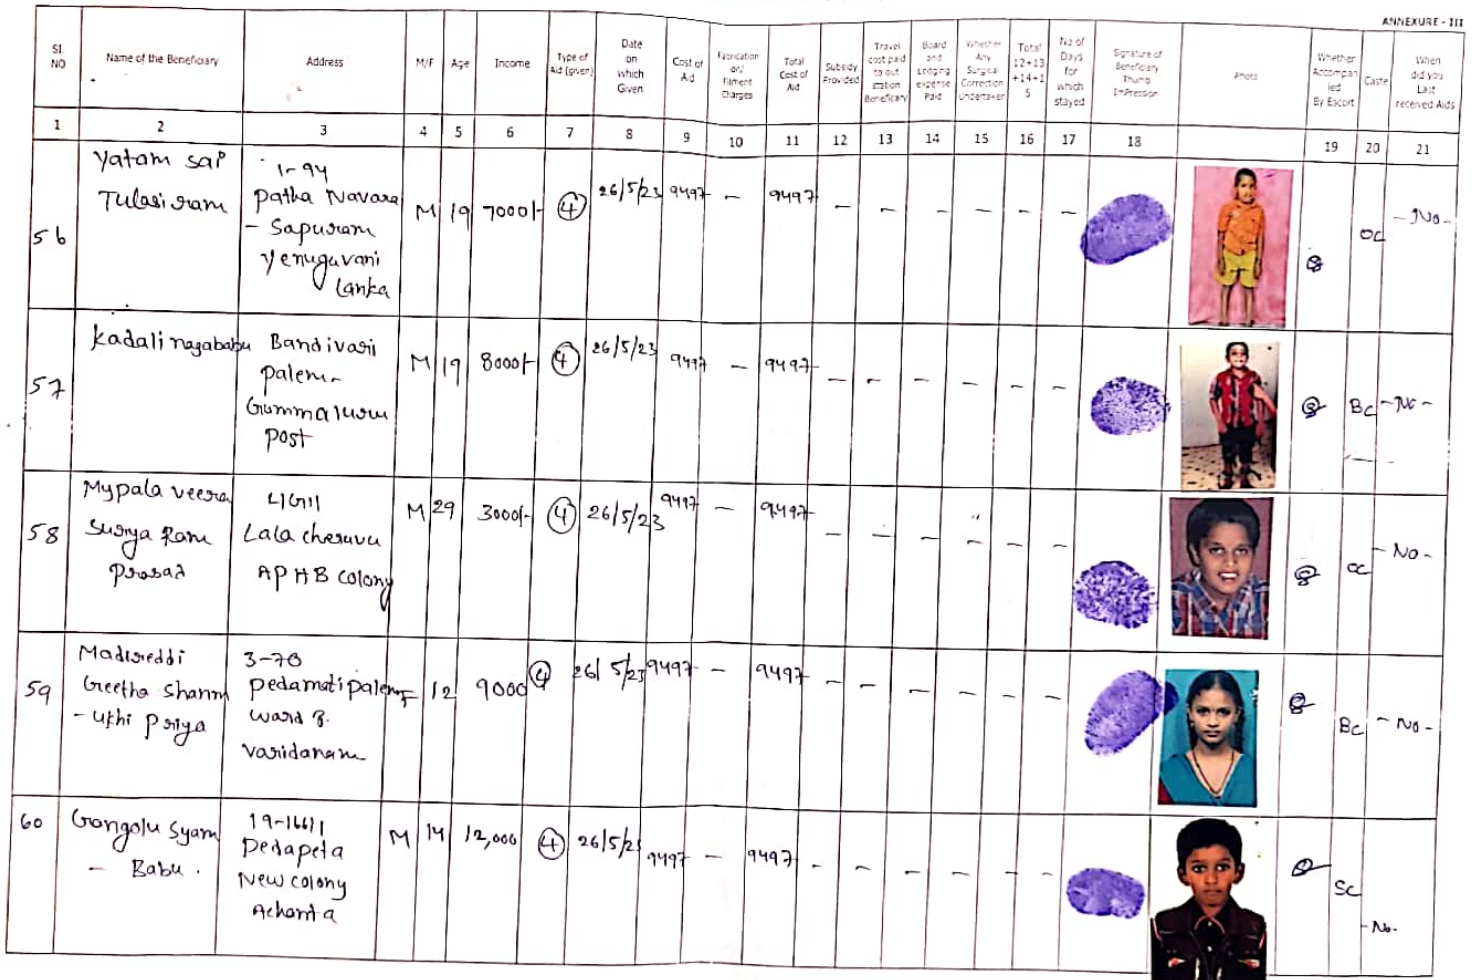 ANNEXURE - III
Sl. NO | Name of the Beneficiary | Address | M/F | Age | Income | Type of Aid (given) | Date on which Given | Cost of Aid | Fabrication or/ Fitment Charges | Total Cost of Aid | Subsidy Provided | Travel cost paid to out station Beneficiary | Board and Lodging expense Paid | Whether Any Surgical Correction Undertaken | Total 12+13+14+15 | No of Days for which stayed | Signature of Beneficiary Thumb ImPression | Photo | Whether Accompanied By Escort | Caste | When did you Last received Aids
1 | 2 | 3 | 4 | 5 | 6 | 7 | 8 | 9 | 10 | 11 | 12 | 13 | 14 | 15 | 16 | 17 | 18 | 19 | 20 | 21
56
Yatam sai
Tulasi ram
1-94
Patha Navara
- Sapuram
Yenuguvani
Lanka
M 19 7000/- 4 26/5/23 9497 - 9497 - - - - - - OC - No -
57
Kadali nagababu
Bandivari
palem-
Gummaluru
post
M 19 8000/- 4 26/5/23 9497 - 9497 - - - - - - BC - No -
58
Mypala veera
Surya Ram
Prasad
Lala cheruvu
APHB colony
M 29 3000/- 4 26/5/23 9497 - 9497 - - - - - - OC - No -
59
Madireddi
Geetha Shanm
- ukhi Priya
3-70
pedamatipalem
ward
Varidanam
F 12 9000 4 26/5/23 9497 - 9497 - - - - - - BC - No -
60
Gangolu Syam
- Babu.
19-166/1
Pedapeta
New colony
Achanta
M 14 12,000 4 26/5/23 9497 - 9497 - - - - - - SC - No -